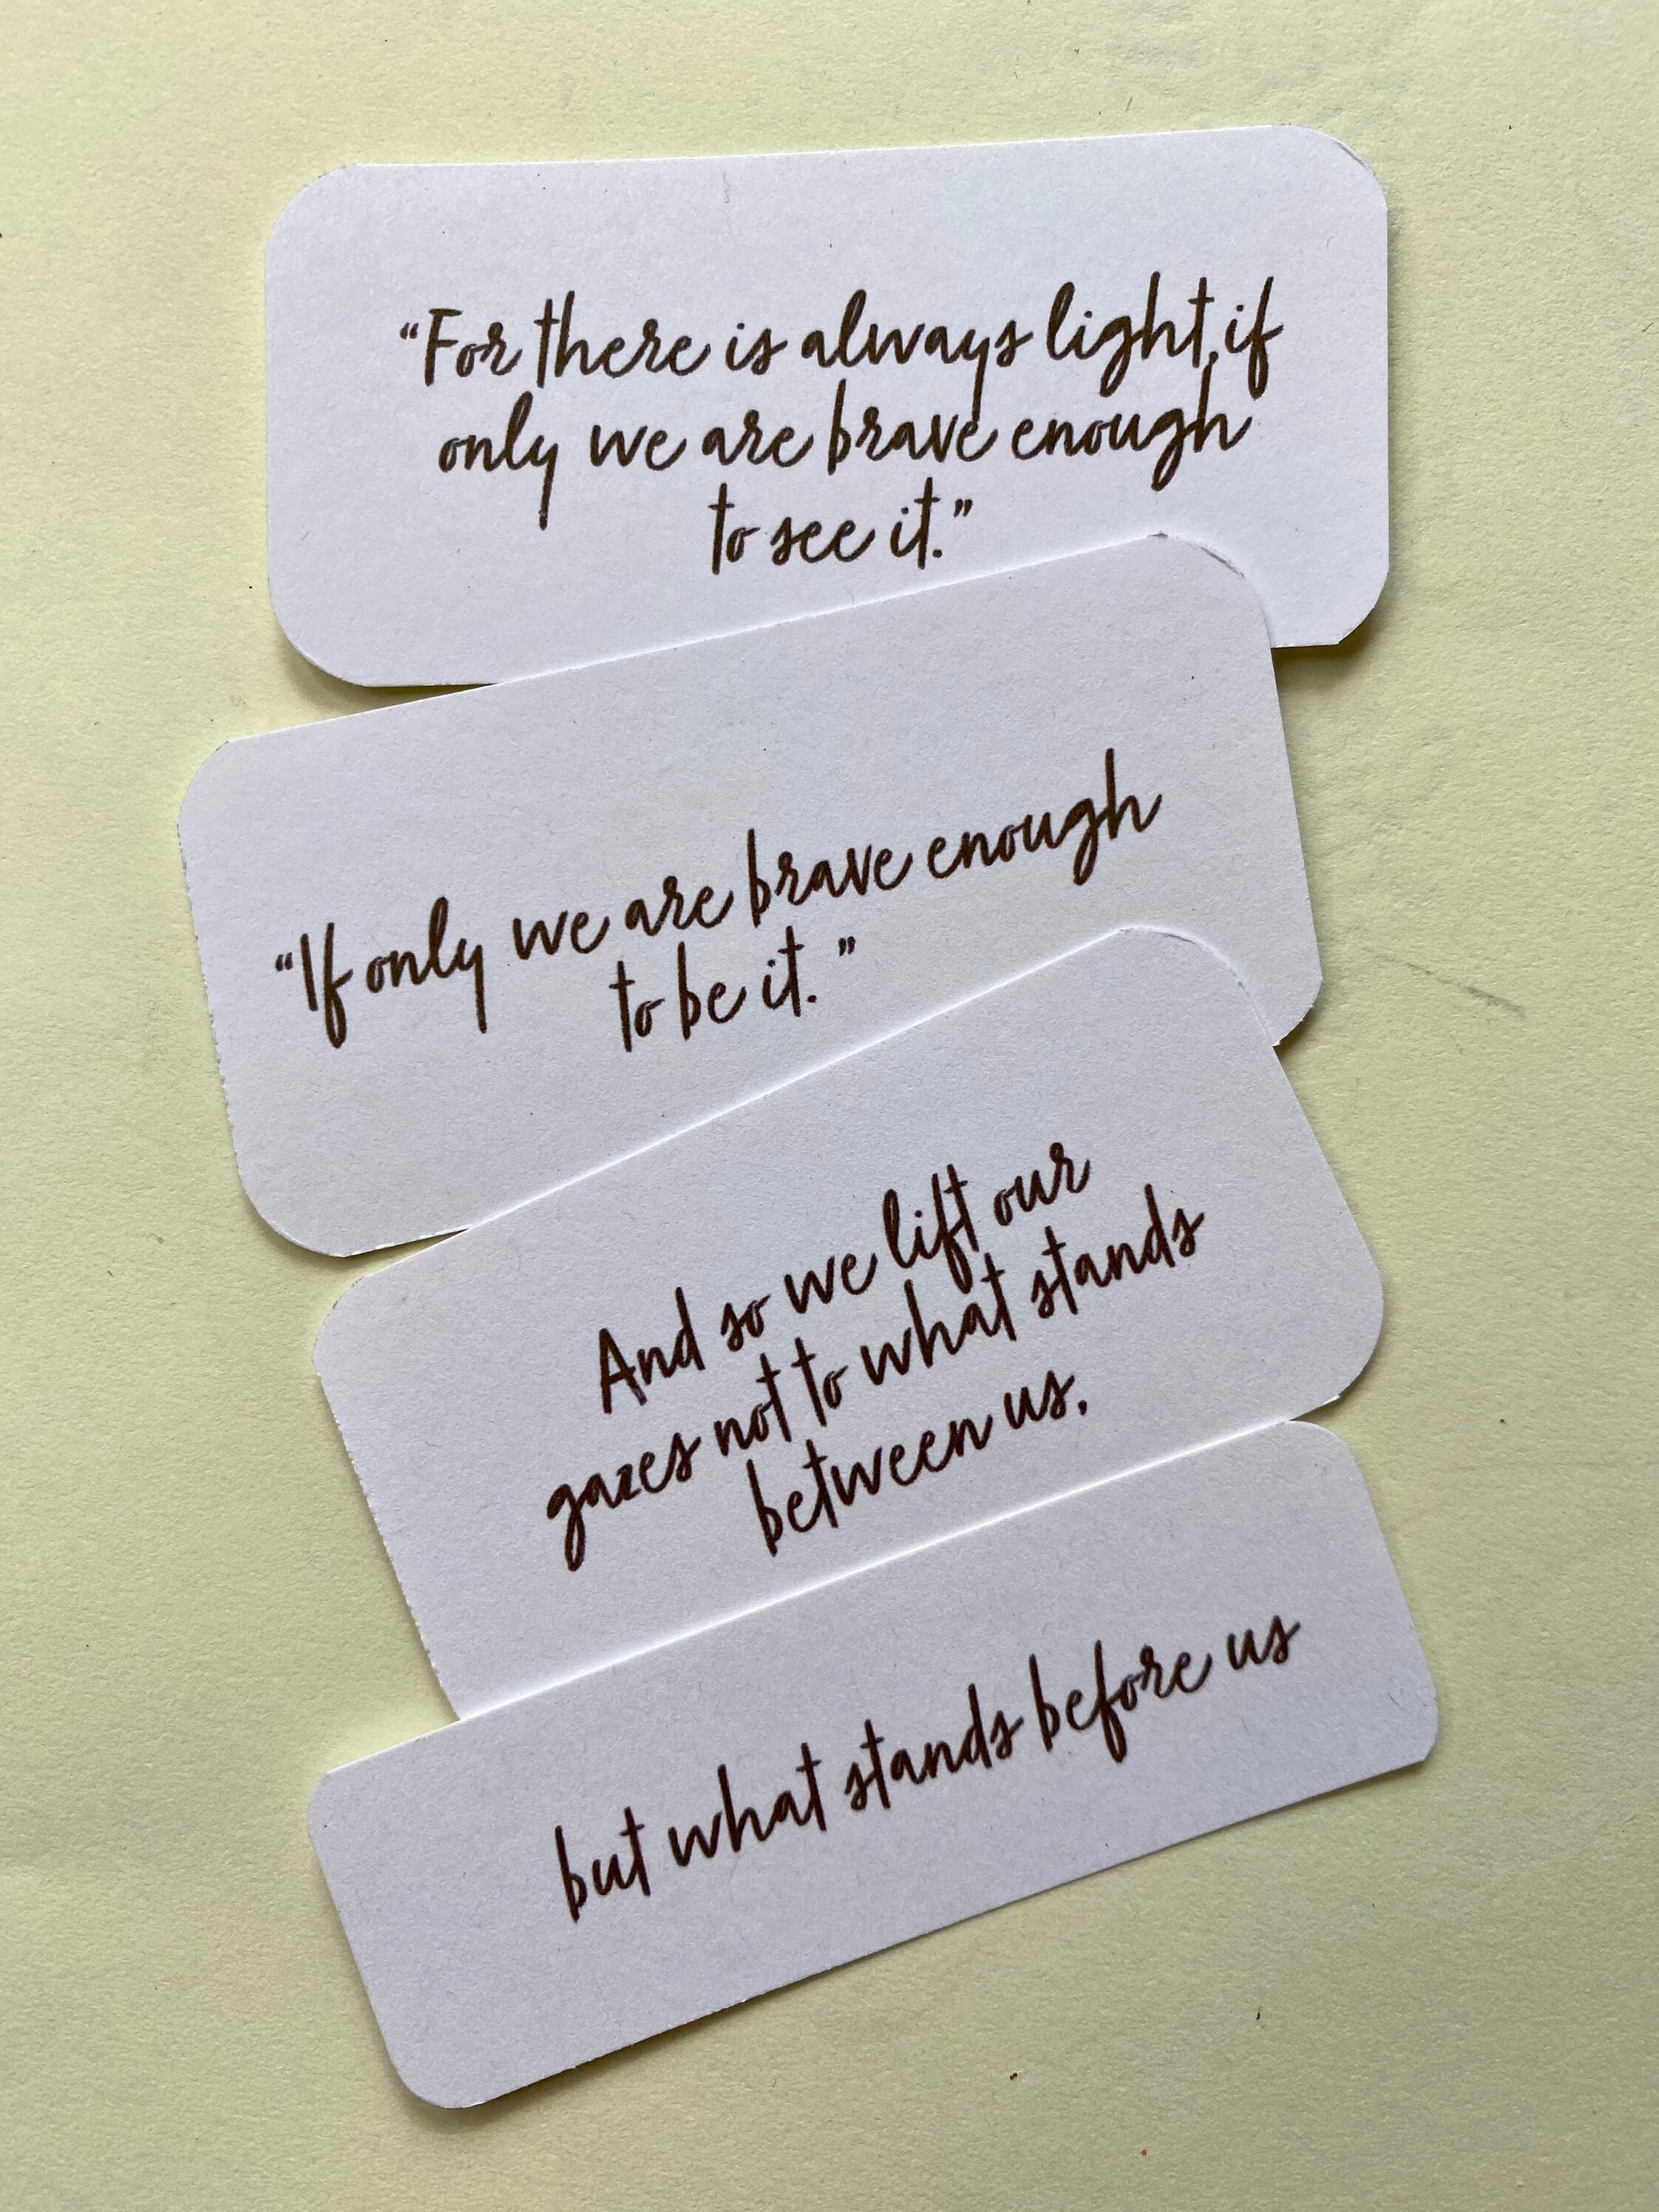 “For there is always light, if
only we are brave enough
to see it.”
“If only we are brave enough
to be it. ”
And so we lift our
gazes not to what stands
between us,
but what stands before us